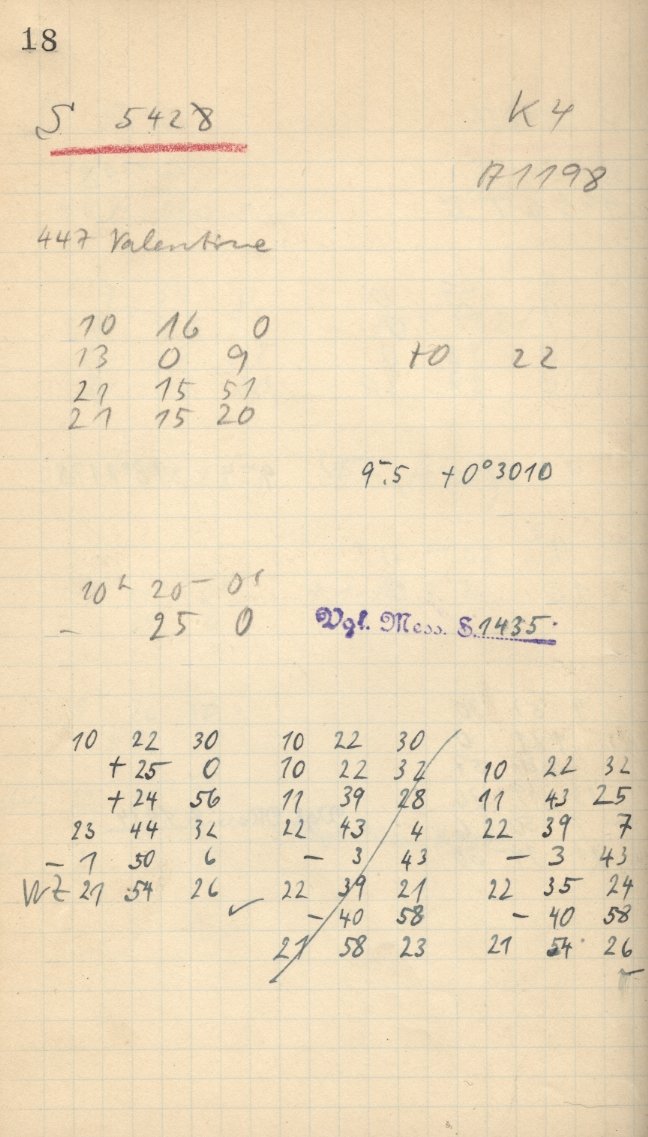 18
S 5428 K 4
A 1198
447 Valentine
10 16 0
13 0 9 +0 22
21 15 51
21 15 20
9.5 +0°3010
10h 20m 0s
- 25 0 Vgl. Mess. S. 1435.
10 22 30 10 22 30
+ 25 0 10 22 32 10 22 32
+ 24 56 11 39 28 11 43 25
23 44 32 22 43 4 22 39 7
- 1 50 6 - 3 43 - 3 43
WZ 21 54 26 ✓ 22 39 21 22 35 24
- 40 58 - 40 58
21 58 23 21 54 26 ✓